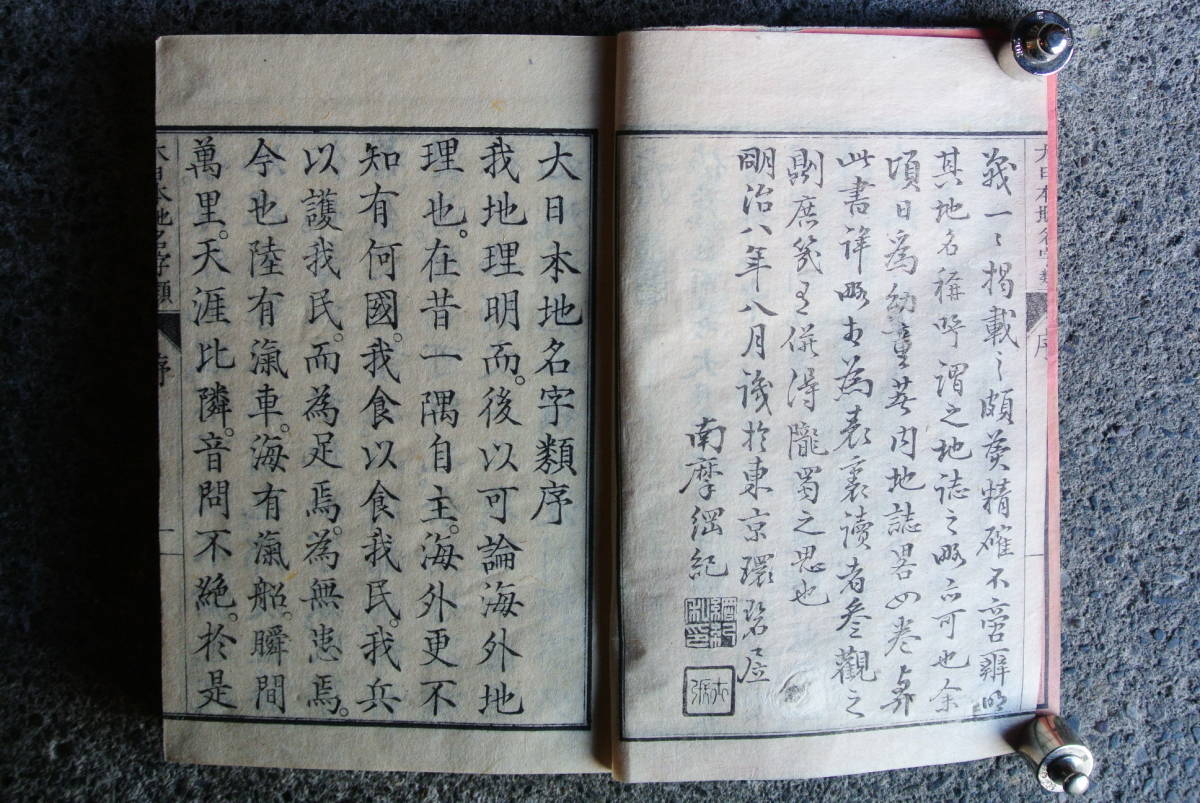 義一〻掲載之頗莫精確不啻辨明
其地名稱呼謂之地誌之略亦可也余
頃日為幼童著内地誌畧四巻與
此書詳略相為表裏讀者参觀之
則庶幾乎併得隴蜀之思也
明治八年八月識於東京環碧居
南摩綱紀
大日本地名字類序
我地理明而。後以可論海外地
理也。在昔一隅自主。海外更不
知有何國。我食以食我民。我兵
以護我民。而為足焉。為無患焉。
今也陸有滊車。海有滊船。瞬間
萬里。天涯比隣。音問不絶。於是
大日本地名字類
序
一